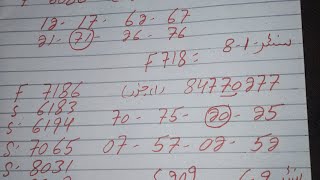 12 - 17 - 62 - 67
21 - 71 - 26 - 76
F 718 = سنٹر 1-8
F 7186 84770277
S 6183
S. 6194 70 - 75 - 20 - 25
S. 7065 07 - 57 - 02 - 52
S. 8031